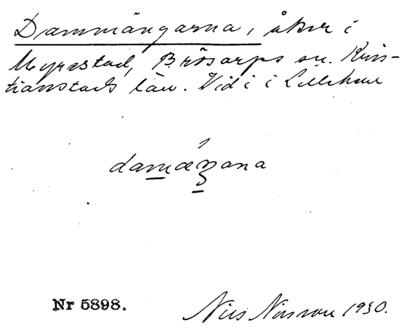 Dammängarna, åker i
Myrestad, Brösarps sn. Kris-
tianstads län. Vid i
damæŋana
Nr 5898.
Nils Nilsson 1930.